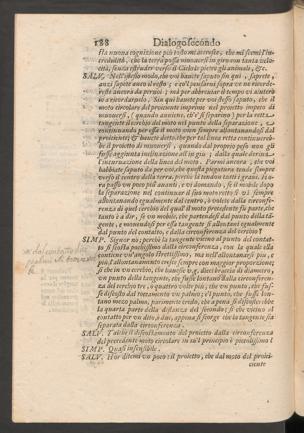 188 Dialogo secondo
sta nuova cognizione più tosto mi accresce, che mi scemi l'in-
credibilità, che la terra possa muoversi in giro con tanta velo-
cità, senza estruder verso il Cielo le pietre gli animali, &c.
SALV. Nell'istesso modo, che voi havete saputo sin quì, saprete,
anzi sapete anco il resto; e co'l pensarvi sopra ve ne ricorde-
reste ancora da per voi; ma per abbreviar il tempo vi aiuterò
io a ricordarvelo. Sin quì havete per voi stesso saputo, che il
moto circolare del proiciente imprime nel proietto impeto di
muoversi, (quando avvien, ch' e' si separino) per la retta
tangente il cerchio del moto nel punto della separazione,
continuando per essa il moto vien sempre allontanandosi dal
proiciente; & havete detto, che per tal linea retta continuereb-
be il proietto a muoversi, quando dal proprio peso non gli
fusse aggiunta inclinazione all'in giù; dalla quale deriva
l'incurvazione della linea del moto. Parmi ancora, che voi
habbiate saputo da per voi, che questa piegatura tende sempre
verso il centro della terra, perchè là tendon tutti i gravi. Ho-
ra passo un poco più avanti, e vi domando, se il mobile dopo
la separazione nel continuar il suo moto retto si và sempre
allontanando egualmente dal centro, ò volete dalla circonfe-
renza di quel cerchio del qual il moto precedente fu parte, che
tanto è a dir, se un mobile, che partendosi dal punto della tan-
gente, e movendosi per essa tangente si allontani egualmente
dal punto del contatto, e dalla circonferenza del cerchio?
SIMP. Signor nò; perchè la tangente vicino al punto del contat-
to si scosta pochissimo dalla circonferenza, con la quale ella
contiene un'angolo strettissimo, ma nell'allontanarsi più, e
più, l'allontanamento cresce sempre con maggior proporzione;
si che in un cerchio, che havesse v. g. dieci braccia di diametro,
un punto della tangente, che fusse lontano dalla circonferen-
za del cerchio trè, o quattro volte più; che un punto, che fus-
se discosto dal toccamento un palmo; e'l punto, che fusse lon-
tano mezo palmo, parimente credo, che a pena si discostereb
la quarta parte della distanza del secondo; sì che vicino al
contatto per un dito ò due, appena si scorge che la tangente sia
separata dalla circonferenza.
SALV. Talche il discostamento del proietto dalla circonferenza
del precedente moto circolare in su'l principio è piccolissimo?
SIMP. Quasi insensibile.
SALV. Hor ditemi un poco: il proietto, che dal moto del proici-
ciente